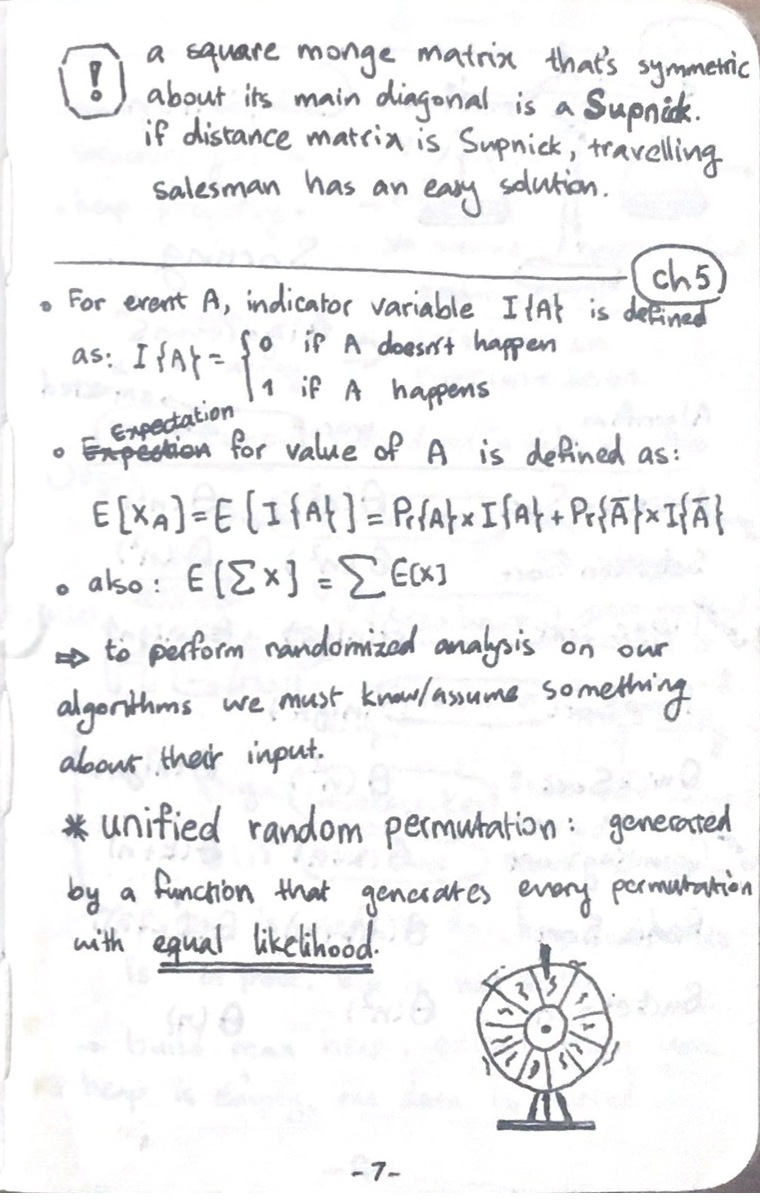 ! a square monge matrix that's symmetric
about its main diagonal is a Supnick.
if distance matrix is Supnick, travelling
salesman has an easy solution.
ch5
• For event A, indicator variable I{A} is defined
as: I{A} = { 0 if A doesn't happen
1 if A happens
Expectation
• Expection for value of A is defined as:
E[XA] = E[I{A}] = Pr{A} x I{A} + Pr{Ā} x I{Ā}
• also: E[∑x] = ∑E[x]
⇒ to perform randomized analysis on our
algorithms we must know/assume something
about their input.
* unified random permutation: generated
by a function that generates every permutation
with equal likelihood.
-7-